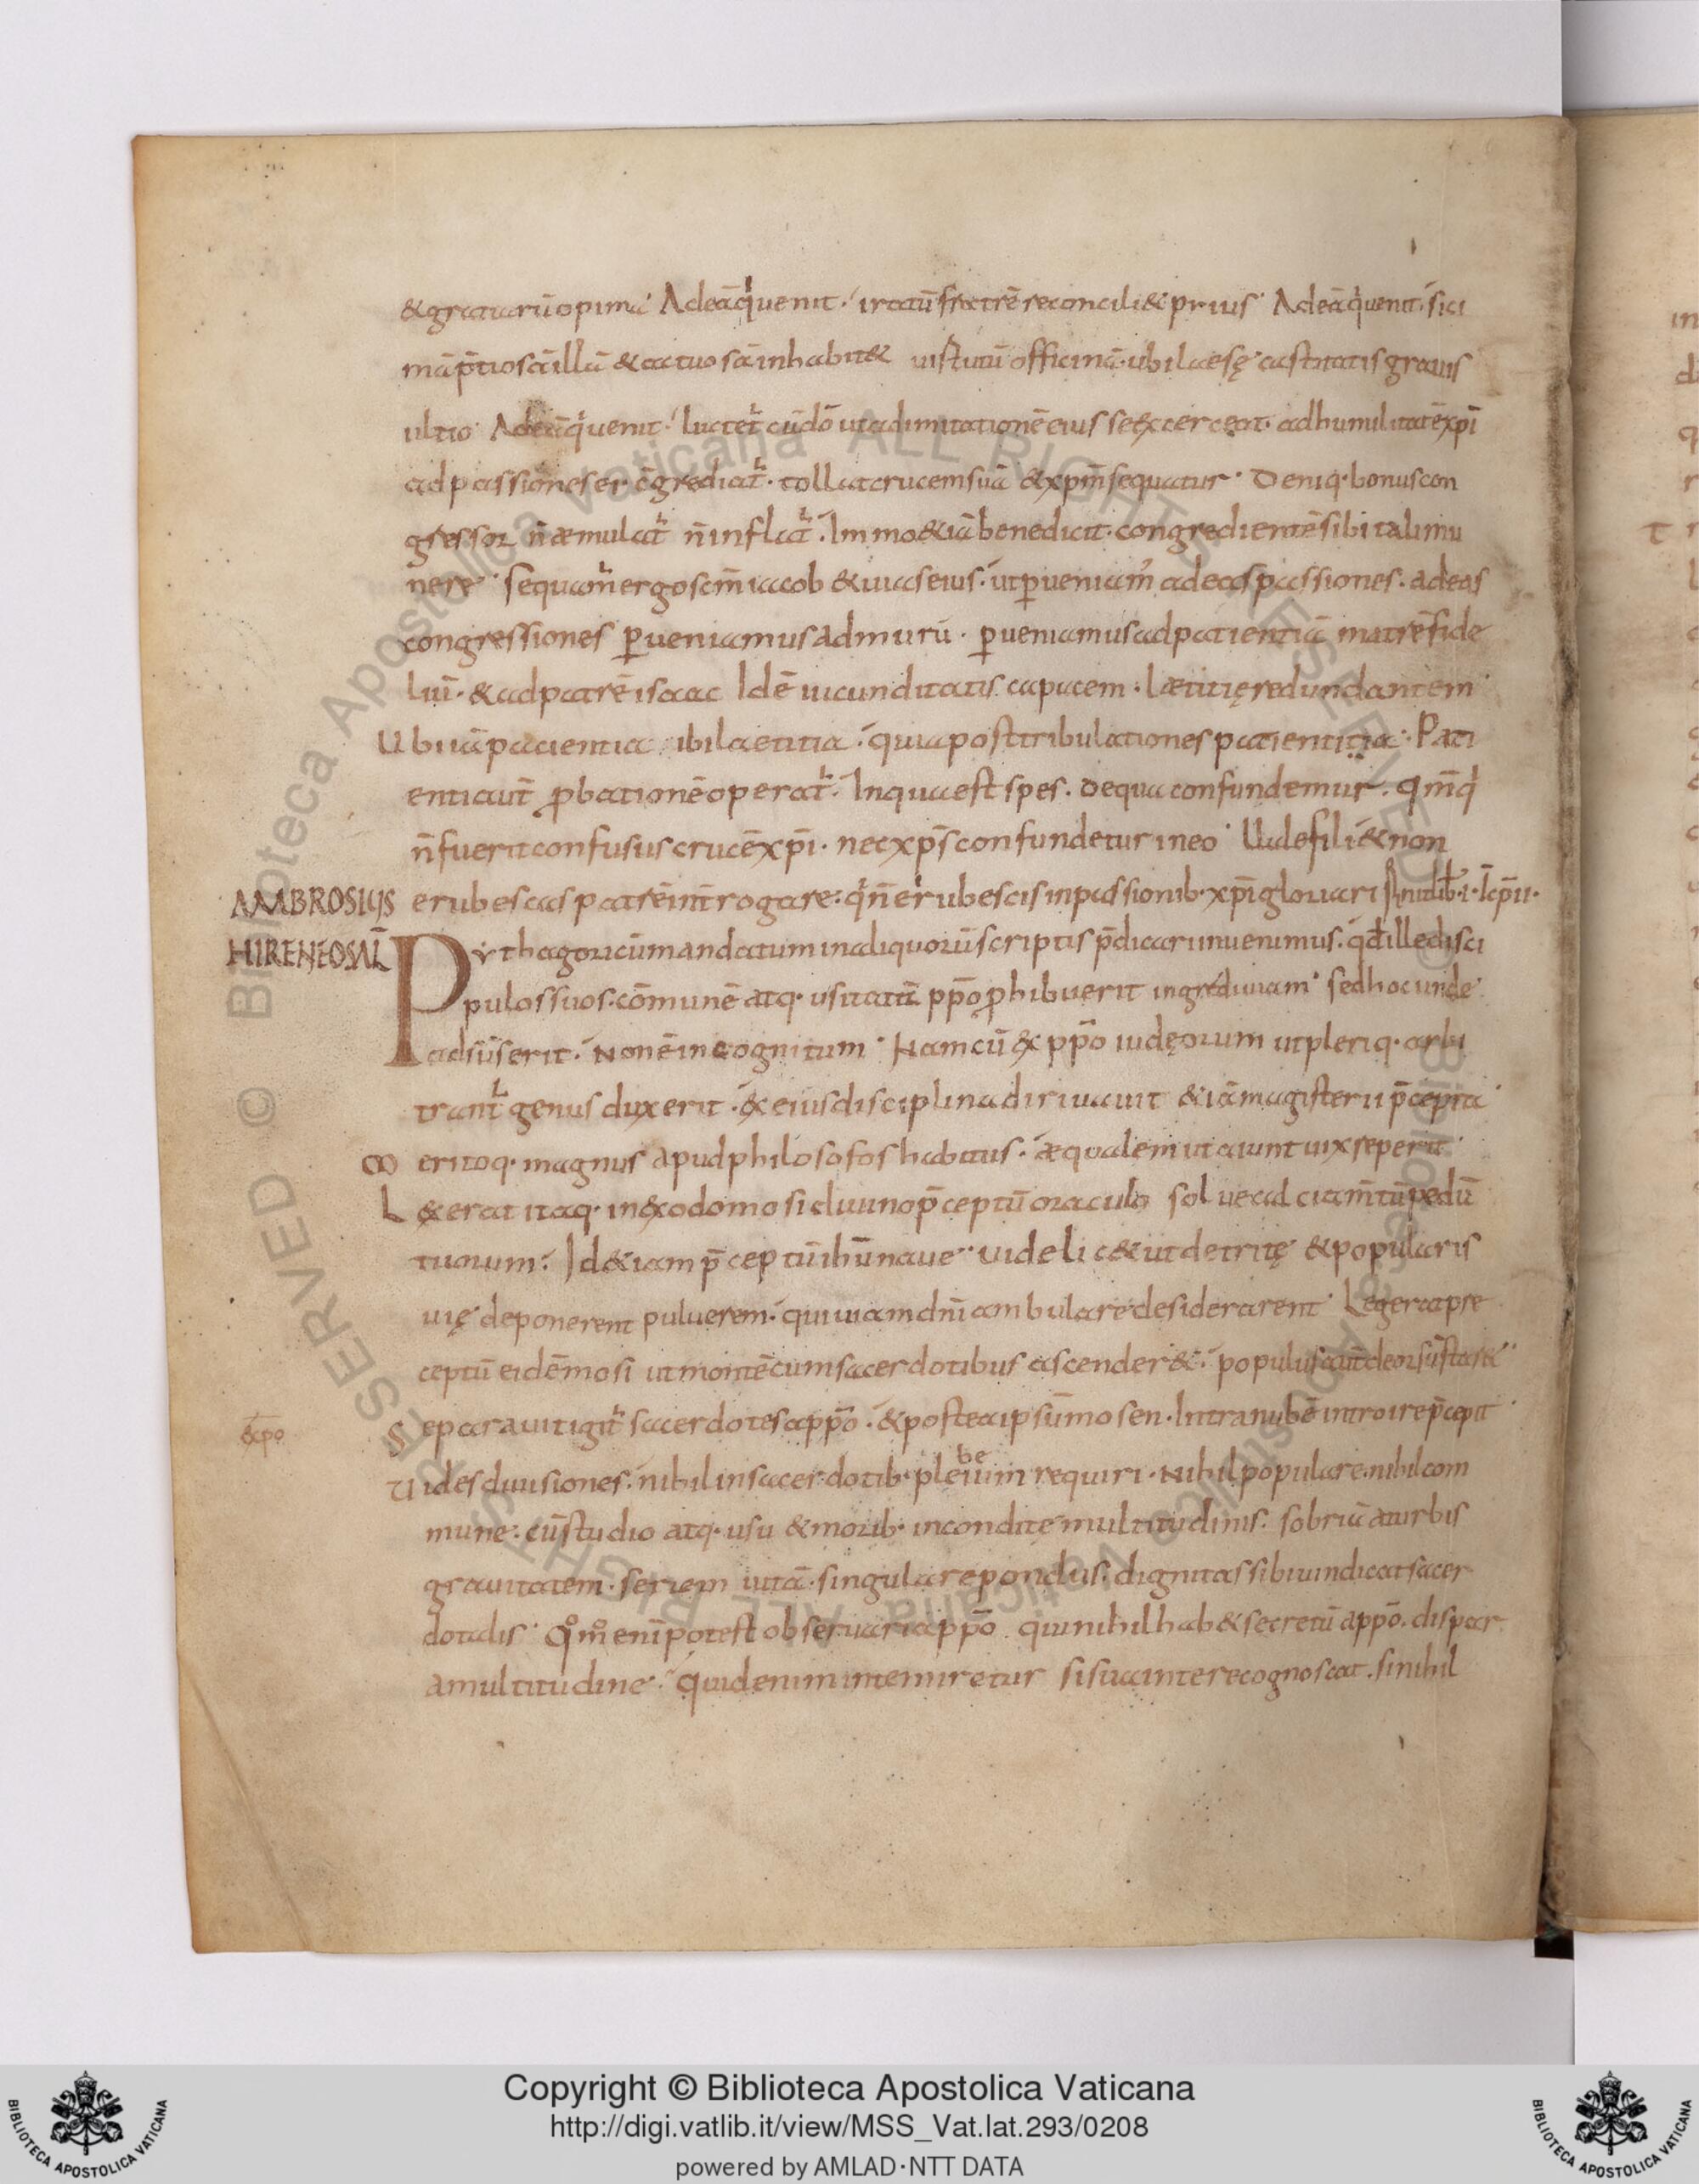 &gratiarū opima· Adeāq uenit· iratū fratrē reconcili& prius· Adeāq uenit· sici
māp̄tiosā illā & actuosā inhabit& uirtutū officinā· ubi laesę castitatis grauis
ultio· Adeāq uenit· luctet̄ cū dō ut ad imitationē eius se exerceat· ad humilitatē xp̄i
ad passiones er c̄grediat̄· tollat crucem suā & xp̄m sequatur· Deniq· bonus con
gressor n̄ æmulat̄ n̄ inflat̄· Immo & iā benedicit· congredientē sibi tali mu
nere· sequam̄ ergo sc̄m iacob & uias eius· ut p̱ueniam̄ ad eas passiones· ad eas
congressiones p̱ueniamus ad murū· p̱ueniamus ad patientiā matrē fide
liū· & ad patrē isaac Idē iucunditatis capacem· lætitię redundantem·
Ubi iā pacientia ibi laetitia· quia post tribulationes patientitia· Pati
entia aut̄ p̱bationē operat̄· In qua est spes· De qua confundemur· qm̄ q
n̄ fuerit confusus crucē xp̄i· nec xp̄s confundetur in eo· Uide fili & non
erubescas patrē int̄rogare· q n̄ erubescis in passionib· xp̄i gloriari
AMBROSIUS
HIRENEO SAL̄
Pythagoricū mandatum in aliquorū scriptis p̄dicari inuenimus· qđ ille disci
pulos suos· cōmunē atq· usitatū pp̄o p̱hibuerit ingredi uiam· sed hoc unde
adsūserit· Non ē incognitum· Nam cū ex pp̄o iudęorum ut pleriq· arbi
trant̄ genus duxerit· ex eius disciplina diriuauit & iā magisterii p̄cepta·
Meritoq· magnus apud philosofos habitus· æqualem ut aiunt uix reperit·
Legerat itaq· in exodo mosi diuino p̄ceptū oraculo solue calciam̄tū pedū
tuorum· Id & iam p̄ceptū ihū naue· uidelic& ut detritę & popularis
uię deponerent puluerem· qui uiam dn̄i ambulare desiderarent· Legerat pre
ceptū eidē mosi ut montē cum sacerdotibus ascender&· populus aut̄ deorsū star&·
Separauit igit̄ sacerdotes a pp̄o· & postea ipsū mosen· Intra nubē introire p̄cepit·
Uides diuisiones· nihil in sacerdotib· pleium requiri· Nihil populare· nihil com
be
mune· cū studio atq· usu & morib· inconditę multitudinis· sobriā a turbis
grauitatem· seriem uitā· singulare pondus· dignitas sibi uindicat sacer
dotalis· Qm̊ eni potest obseruari a pp̄o qui nihil hab& secretū a pp̄o· dispar
a multitudine· quid enim in te miretur si sua in te recognoscat· si nihil
Copyright © Biblioteca Apostolica Vaticana
http://digi.vatlib.it/view/MSS_Vat.lat.293/0208
powered by AMLAD·NTT DATA
BIBLIOTECA APOSTOLICA VATICANA
BIBLIOTECA APOSTOLICA VATICANA